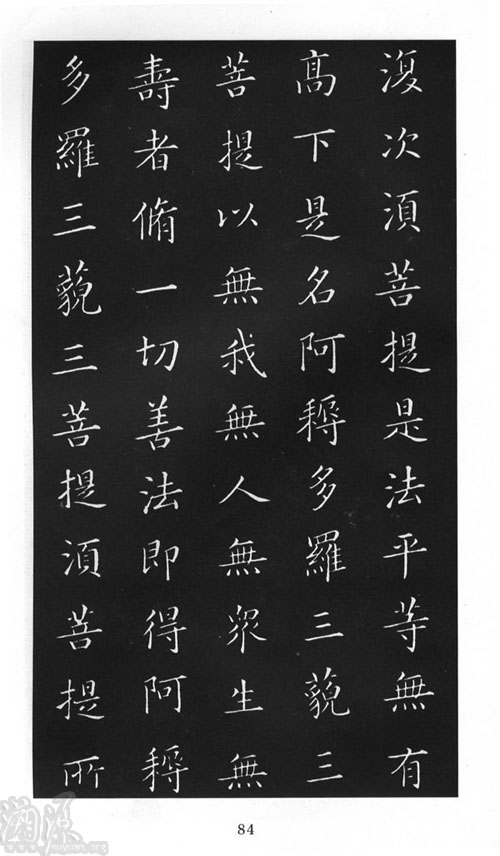 復次須菩提是法平等無有
高下是名阿耨多羅三藐三
菩提以無我無人無眾生無
壽者脩一切善法即得阿耨
多羅三藐三菩提須菩提所
84